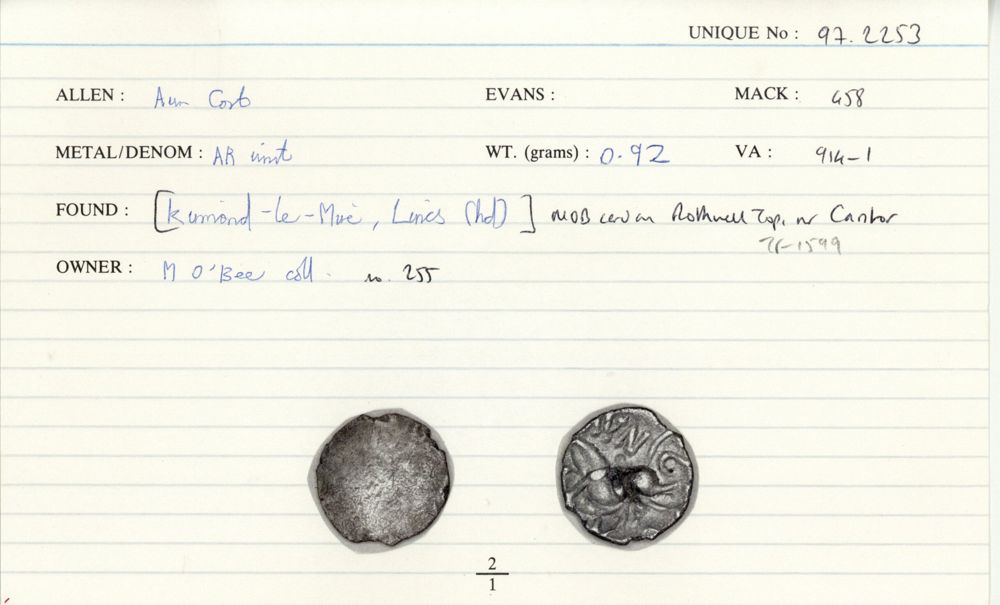 UNIQUE No : 97.2253
ALLEN : Aun Cost EVANS : MACK : 458
METAL/DENOM : AR unit WT. (grams) : 0.92 VA : 914-1
FOUND : [Kirmond-le-Mire, Lincs (hd)] MOB Rothwell Top, nr Caistor
TF 1599
OWNER : M O'Bee coll. no. 255
2
1